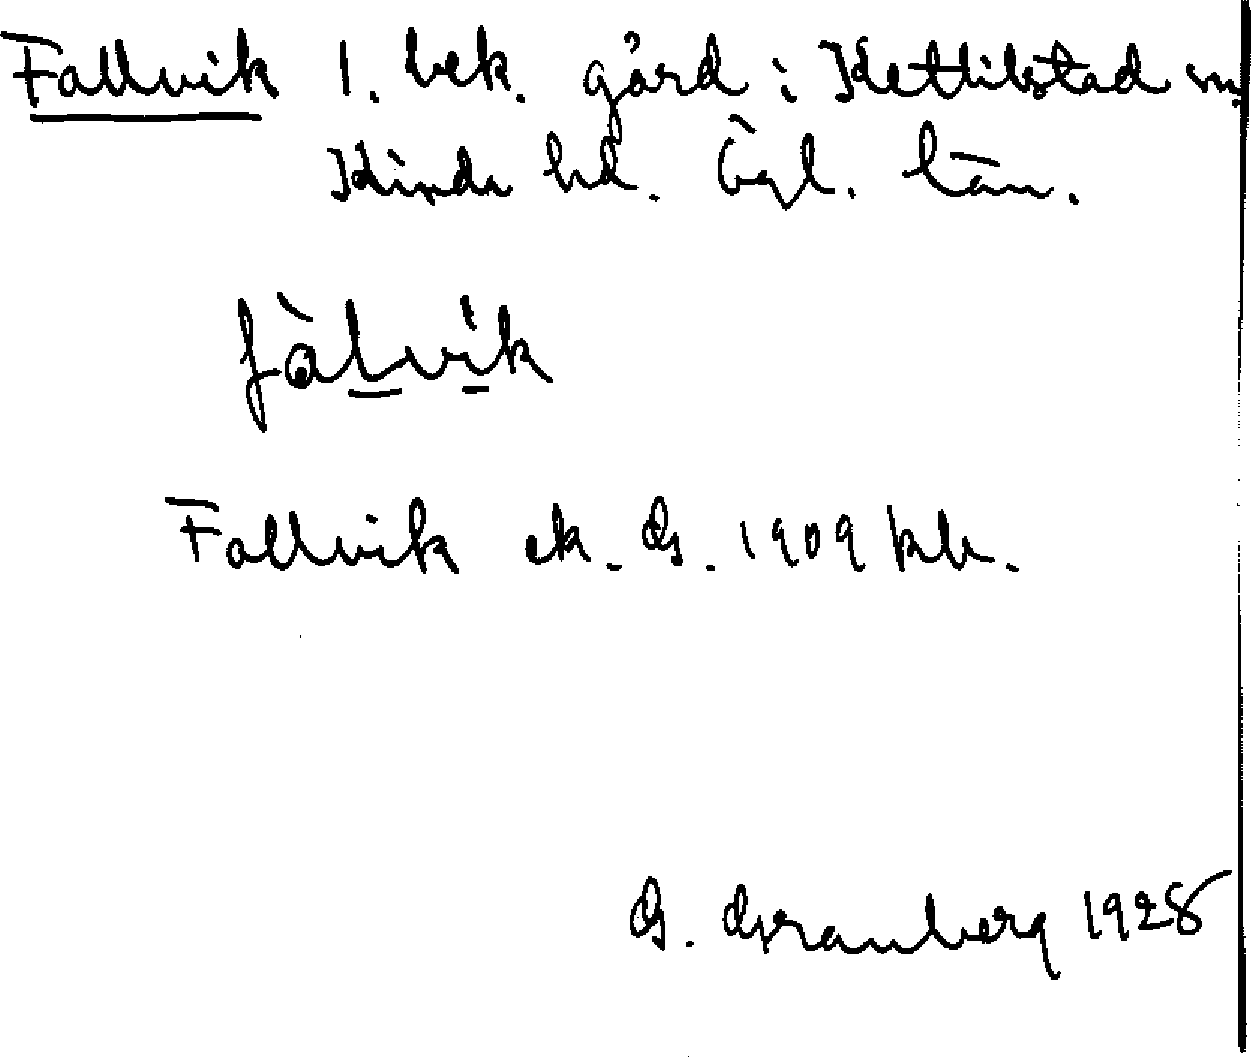 Fallvik 1. bek. gård i Kettilstad sn,
Kinda hd. Ögl. län.
fàlvik
Fallvik ek. G. 1909 klr.
G. Granberg 1928